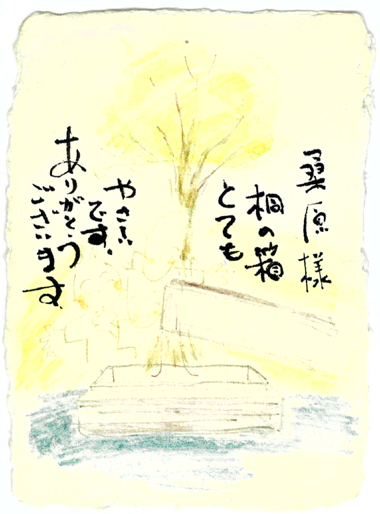 桑原様
桐の箱
とても
やさしい
です、
ありがとう
ございます。